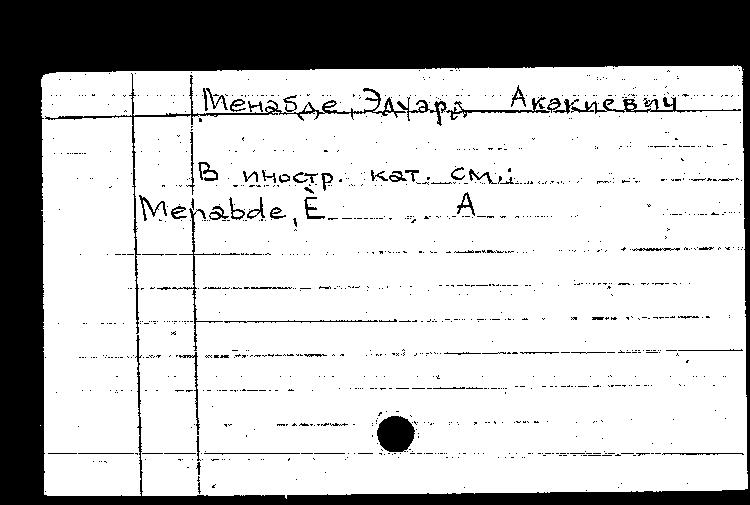 Менабде, Эдуард Акакиевич
В иностр. кат. см.:
Menabde, È A